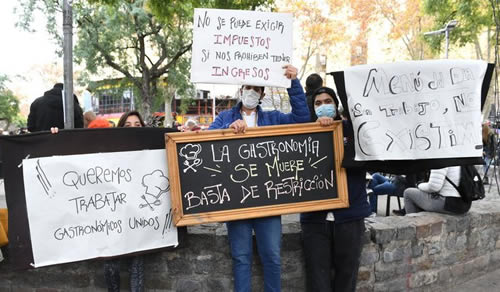 No se puede exigir
impuestos
si nos prohiben tener
ingresos
Queremos
trabajar
gastronómicos unidos
La gastronomia
se muere
basta de restricción
Menú del día
Sin trabajo, no
existim